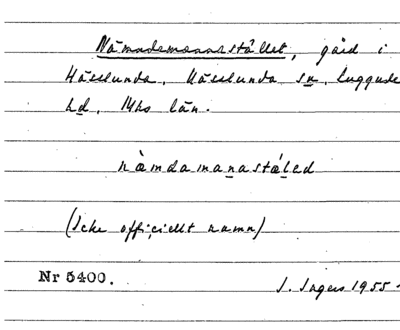 Nämndemansstället, gård i
Hässlunda, Hässlunda sn, Luggude
hd, Mhs län.
nàmdamanastáled
(Icke officiellt namn)
Nr 5400.
J. Ingers 1955